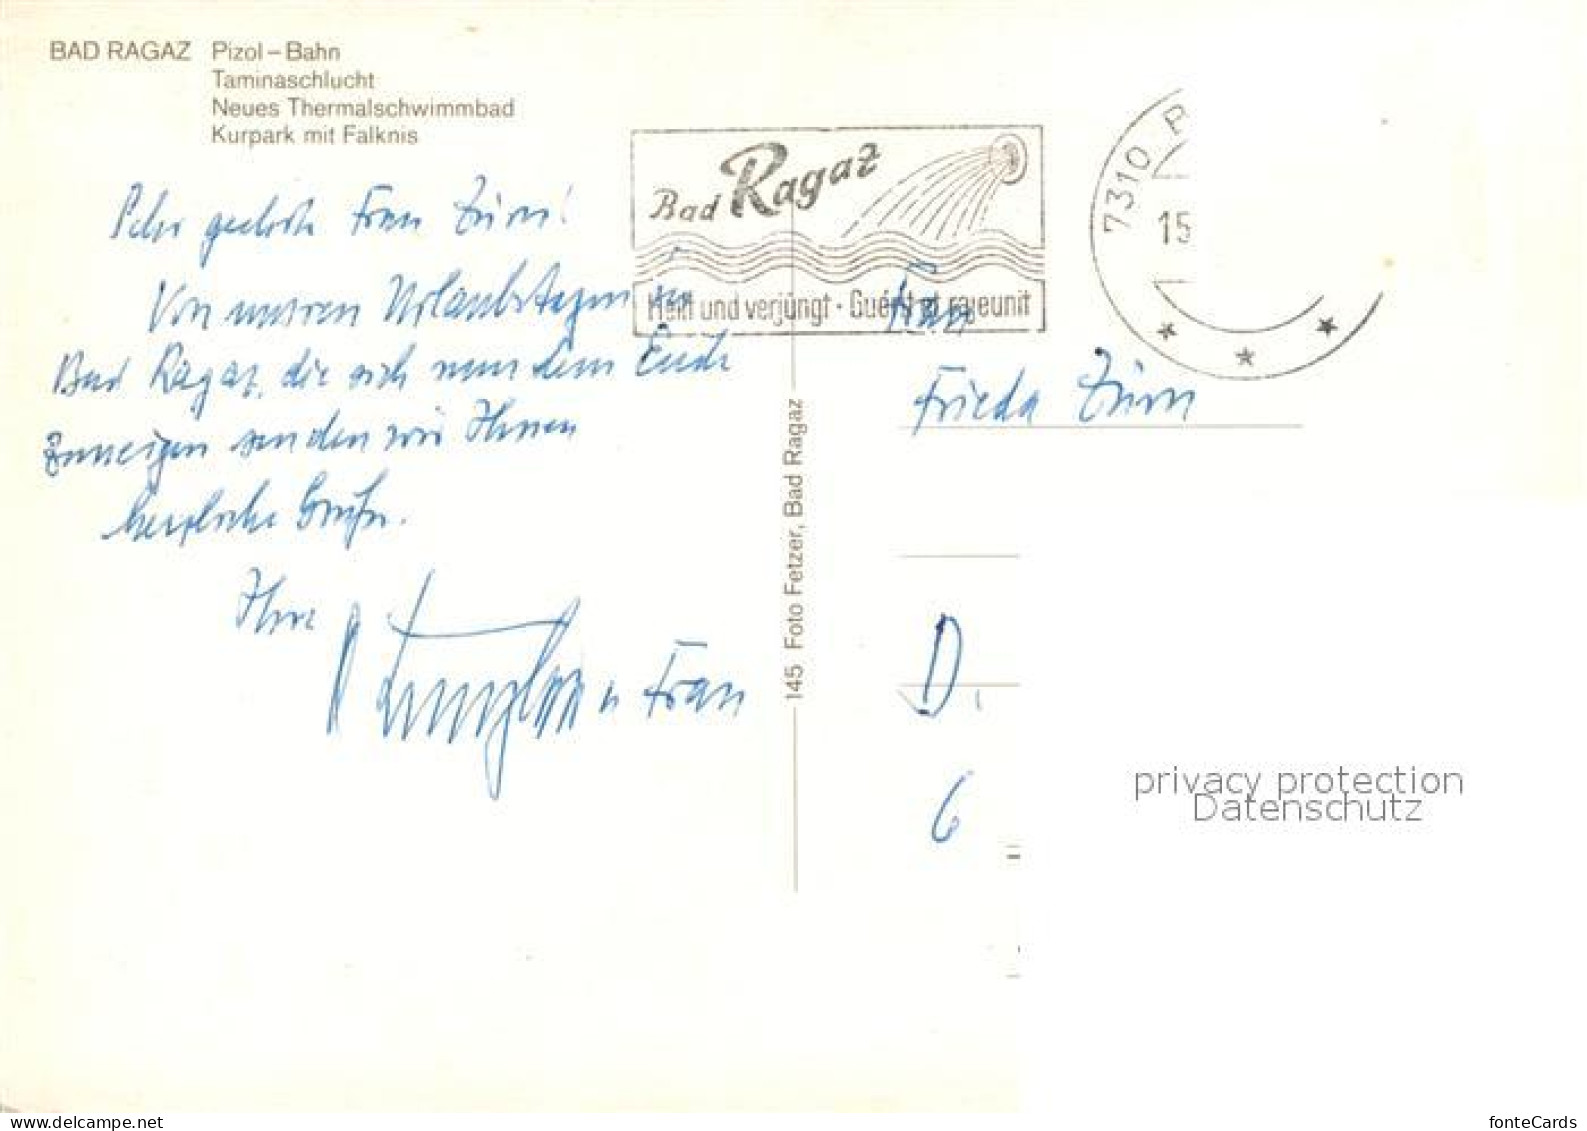 BAD RAGAZ Pizol – Bahn
Taminaschlucht
Neues Thermalschwimmbad
Kurpark mit Falknis
Sehr geehrte Frau Zürn!
Von unseren Urlaubstagen in
Bad Ragaz, die sich nun dem Ende
zuneigen senden wir Ihnen
herzliche Grüße.
Ihre
u Frau
145 Foto Fetzer, Bad Ragaz
Bad Ragaz
Heilt und verjüngt · Guérit et rajeunit
7310 B
15
Frau
Frieda Zürn
D.
6
privacy protection
Datenschutz
www.delcampe.net
fonteCards